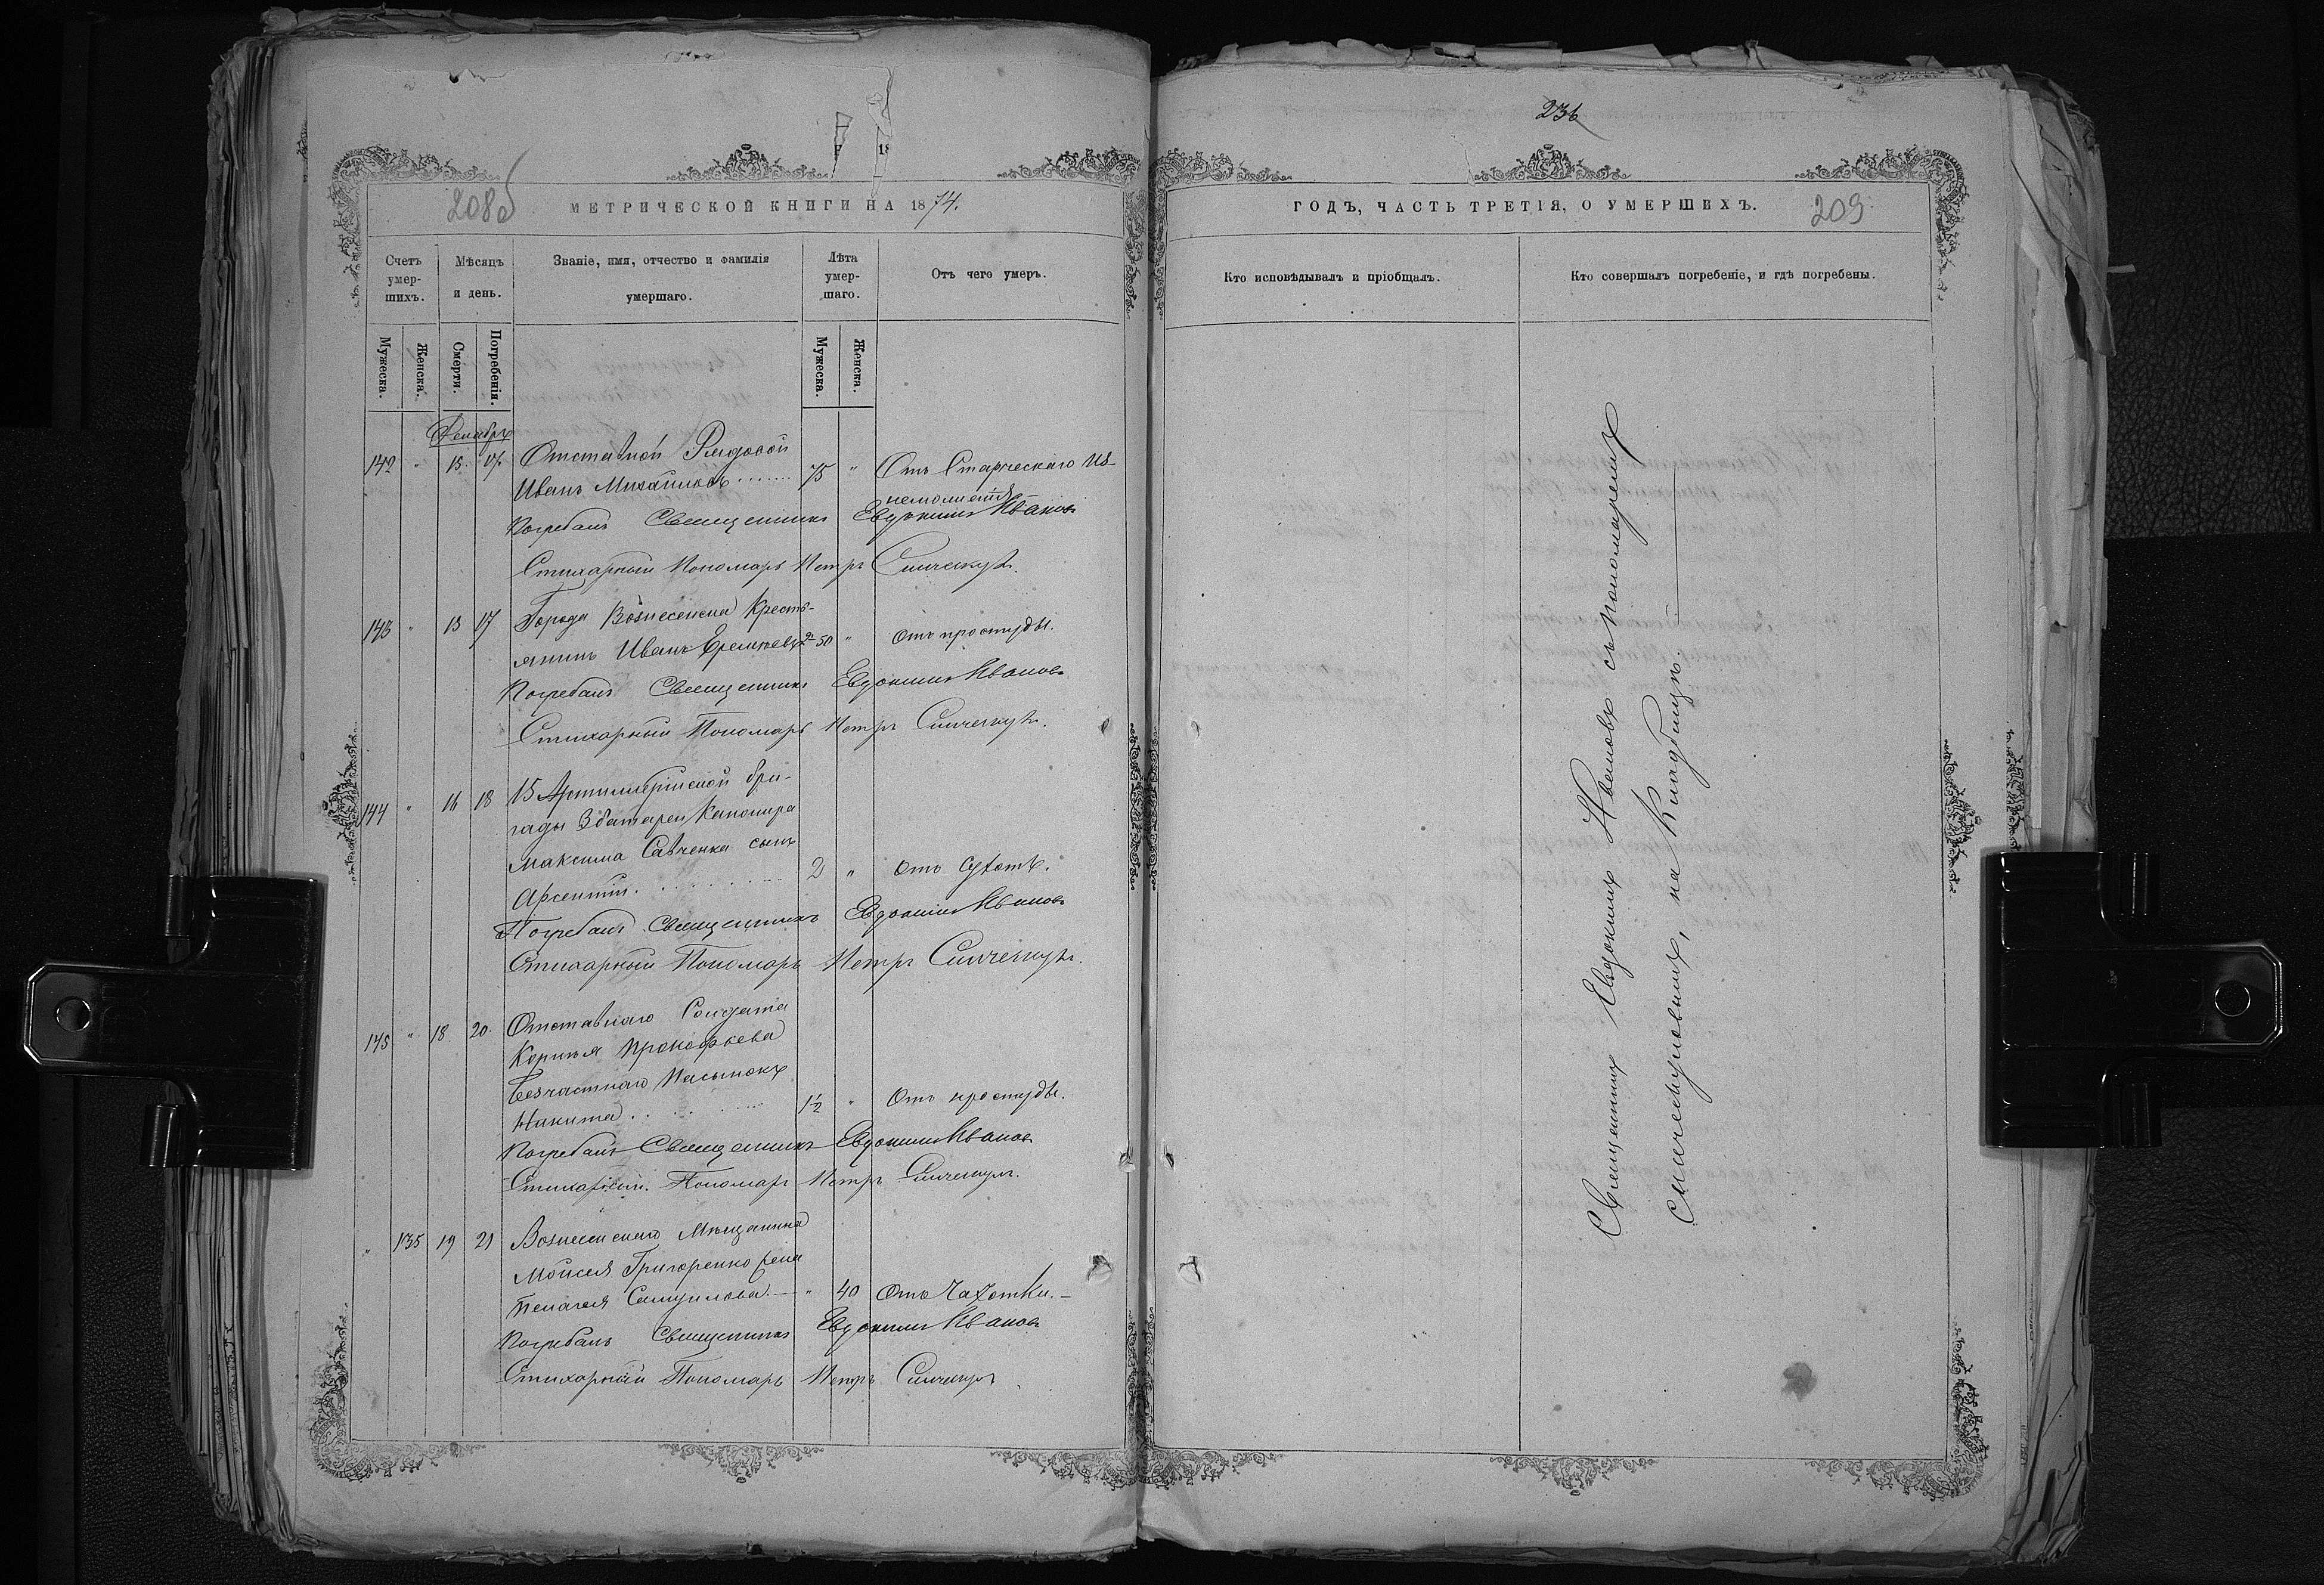 236
208б
МЕТРИЧЕСКОЙ КНИГИ НА 1874.
ГОДЪ, ЧАСТЬ ТРЕТІЯ, О УМЕРШИХЪ.
209
Счетъ умер-шихъ.
Мѣсяцъ и день.
Званіе, имя, отчество и фамилія умершаго.
Лѣта умер-шаго.
Отъ чего умеръ.
Кто исповѣдывалъ и пріобщалъ.
Кто совершалъ погребеніе, и гдѣ погребены.
Мужеска.
Женска.
Смерти.
Погребенія.
Мужеска.
Женска.
Декабрь
142 " 15 17 Отставной Рядовой
Иванъ Михайловъ 75 " Отъ Старческаго из-
неможенія
Погребалъ Священникъ Евдокимъ Ивановъ
Стихарный Пономарь Петръ
143 " 15 17 Города Вознесенска Кресть-
янинъ Иванъ 50 " отъ простуды.
Погребалъ Священникъ Евдокимъ Ивановъ
Стихарный Пономарь Петръ
144 " 16 18 15 Артиллерійской бри-
гады 3 батареи Канонира
Максима Савченка сынъ
Арсентій 2 " отъ сухотъ.
Погребалъ Священникъ Евдокимъ Ивановъ
Стихарный Пономарь Петръ
145 " 18 20 Отставнаго Солдата
Корнѣя Прокофьева
Безчастнаго Пасынокъ
Никита 1½ " Отъ простуды.
Погребалъ Священникъ Евдокимъ Ивановъ
Стихарный Пономарь Петръ
" 135 19 21 Вознесенскаго Мѣщанина
Моисея Григоренко жена
Пелагея Самуилова " 40 Отъ Чахотки.
Погребалъ Священникъ Евдокимъ Ивановъ
Стихарный Пономарь Петръ
Священникъ Евдокимъ Ивановъ съ пономаремъ
на Кладбищѣ.